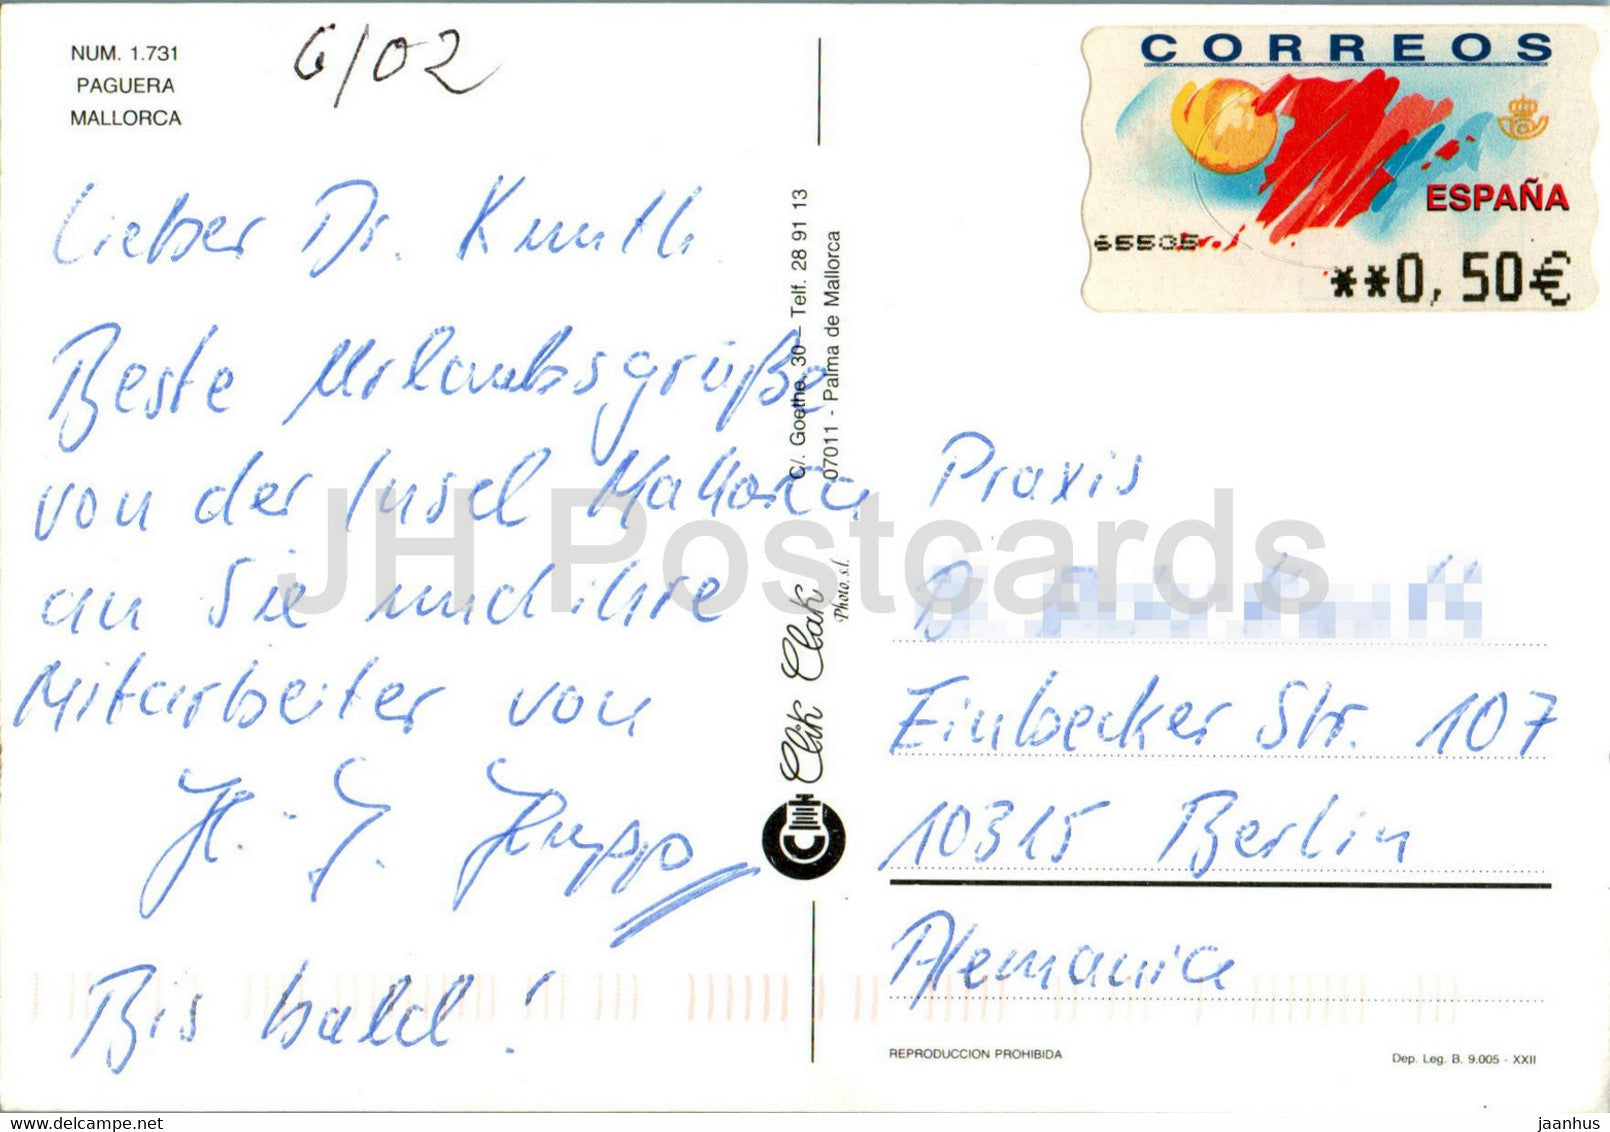 NUM. 1.731
PAGUERA
MALLORCA
6/02
Lieber Dr. Kunth
Beste Urlaubsgrüße
von der Insel Mallorca
an Sie und ihre
Mitarbeiter von
H.-J. Hupp
Bis bald!
C/. Goethe, 30 – Telf. 28 91 13
07011 - Palma de Mallorca
Clik Clak
Photo, s.l.
CORREOS
ESPAÑA
65505
**0,50€
Praxis
Einbecker Str. 107
10315 Berlin
Alemania
REPRODUCCION PROHIBIDA
Dep. Leg. B. 9.005 - XXII
JH Postcards
jaanhus